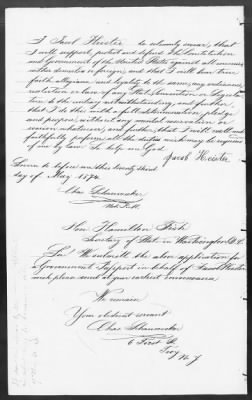 I Jacob Heister do solemnly swear, that
I will support, protect and defend the Constitution
and Government of the United States against all enemies
whether domestic or foreign; and that I will bear true
faith, allegiance and loyalty to the same, any ordinance,
resolution or law of any State Convention or Legisla-
ture to the contrary notwithstanding; and further,
that I do this with a full determination, pledge,
and purpose, without any mental reservation or
evasion whatsoever; and further, that I will well and
faithfully perform all the duties which may be required
of me by law. So help me God
Jacob Heister
Sworn to before me this twenty third
day of May 1874.
Chas
Hon Hamilton Fish
Secretary of State in Washington D.C.
Sir! We enclose the above application for
a Government Passport in behalf of Jacob Heister
which please send at your earliest convenience
We remain
Your obedient servant
Chas
6 First St
Troy
N.Y.